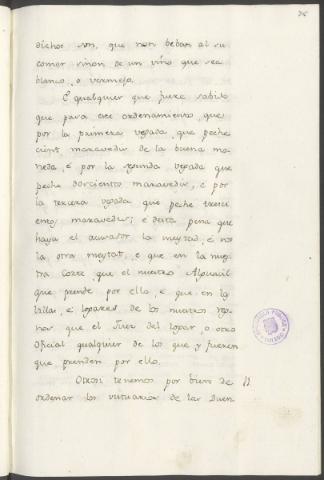 dichos son, que non beban al su
comer sinon de un vino que sea
blanco, o vermejo.
E qualquier que fuere sabido
que pasa este ordenamiento, que
por la primera vegada que peche
cient maravedis de la buena mo-
neda, e por la segunda vegada que
peche doscientos maravedis, e por
la tercera vegada que peche trecci-
entos maravedis; e desta pena que
haya el acusador la meytad, e nos
la otra meytat, e que en la nues-
tra Corte que el nuestro Alguacil
que prende por ello, e que en las
Villas, e logares de los nuestros reg-
nos que el Juez del logar, o otro
Oficial qualquier de los que y fueren
que prenden por ello.
Otrosi tenemos por bien de
ordenar las vestuarias de las Duen